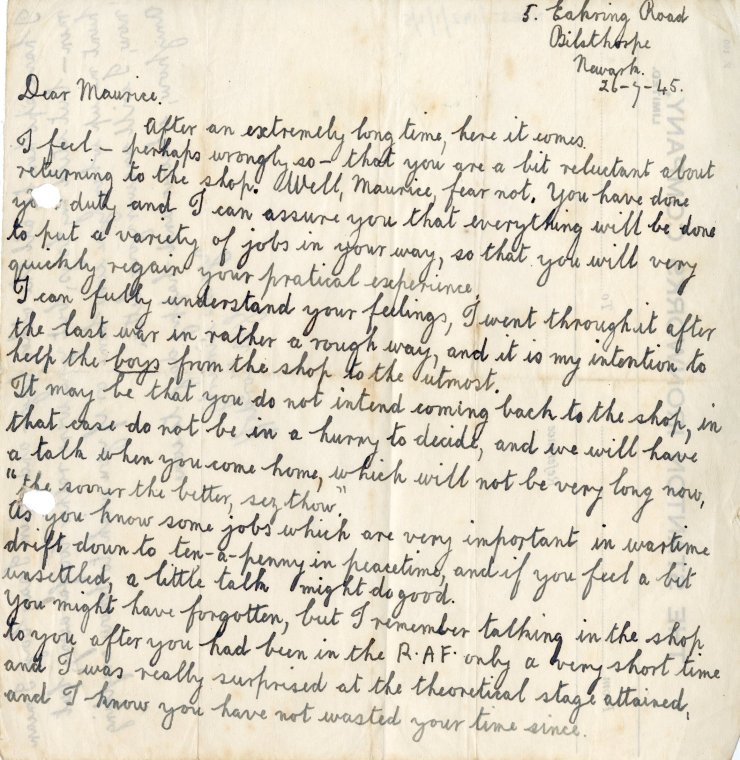 5. Eakring Road
Bilsthorpe
Newark.
26-7-45.
Dear Maurice.
After an extremely long time, here it comes.
I feel - perhaps wrongly so - that you are a bit reluctant about
returning to the shop. Well, Maurice, fear not. You have done
your duty and I can assure you that everything will be done
to put a variety of jobs in your way, so that you will very
quickly regain your pratical experience.
I can fully understand your feelings, I went through it after
the last war in rather a rough way, and it is my intention to
help the boys from the shop to the utmost.
It may be that you do not intend coming back to the shop, in
that case do not be in a hurry to decide, and we will have
a talk when you come home, which will not be very long now,
"the sooner the better, sez thow."
As you know some jobs which are very important in wartime
drift down to ten-a-penny in peacetime, and if you feel a bit
unsettled, a little talk might do good.
You might have forgotten, but I remember talking in the shop
to you after you had been in the R.A.F. only a very short time
and I was really surprised at the theoretical stage attained,
and I know you have not wasted your time since.